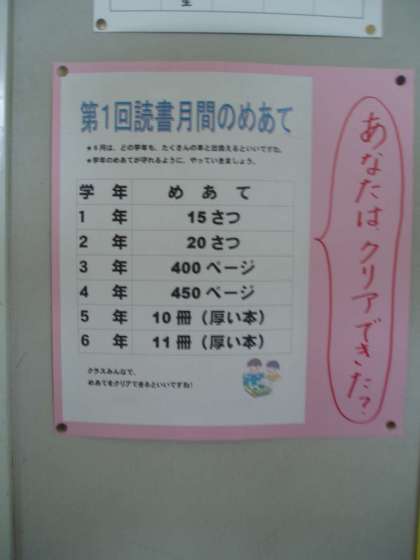 第1回読書月間のめあて
★6月は、どの学年も、たくさんの本と出会えるといいですね。
★学年のめあてが守れるように、やっていきましょう。
学 年 め あ て
1 年 15さつ
2 年 20さつ
3 年 400ページ
4 年 450ページ
5 年 10冊（厚い本）
6 年 11冊（厚い本）
クラスみんなで、
めあてをクリアできるといいですね！
あなたは、クリアできた？